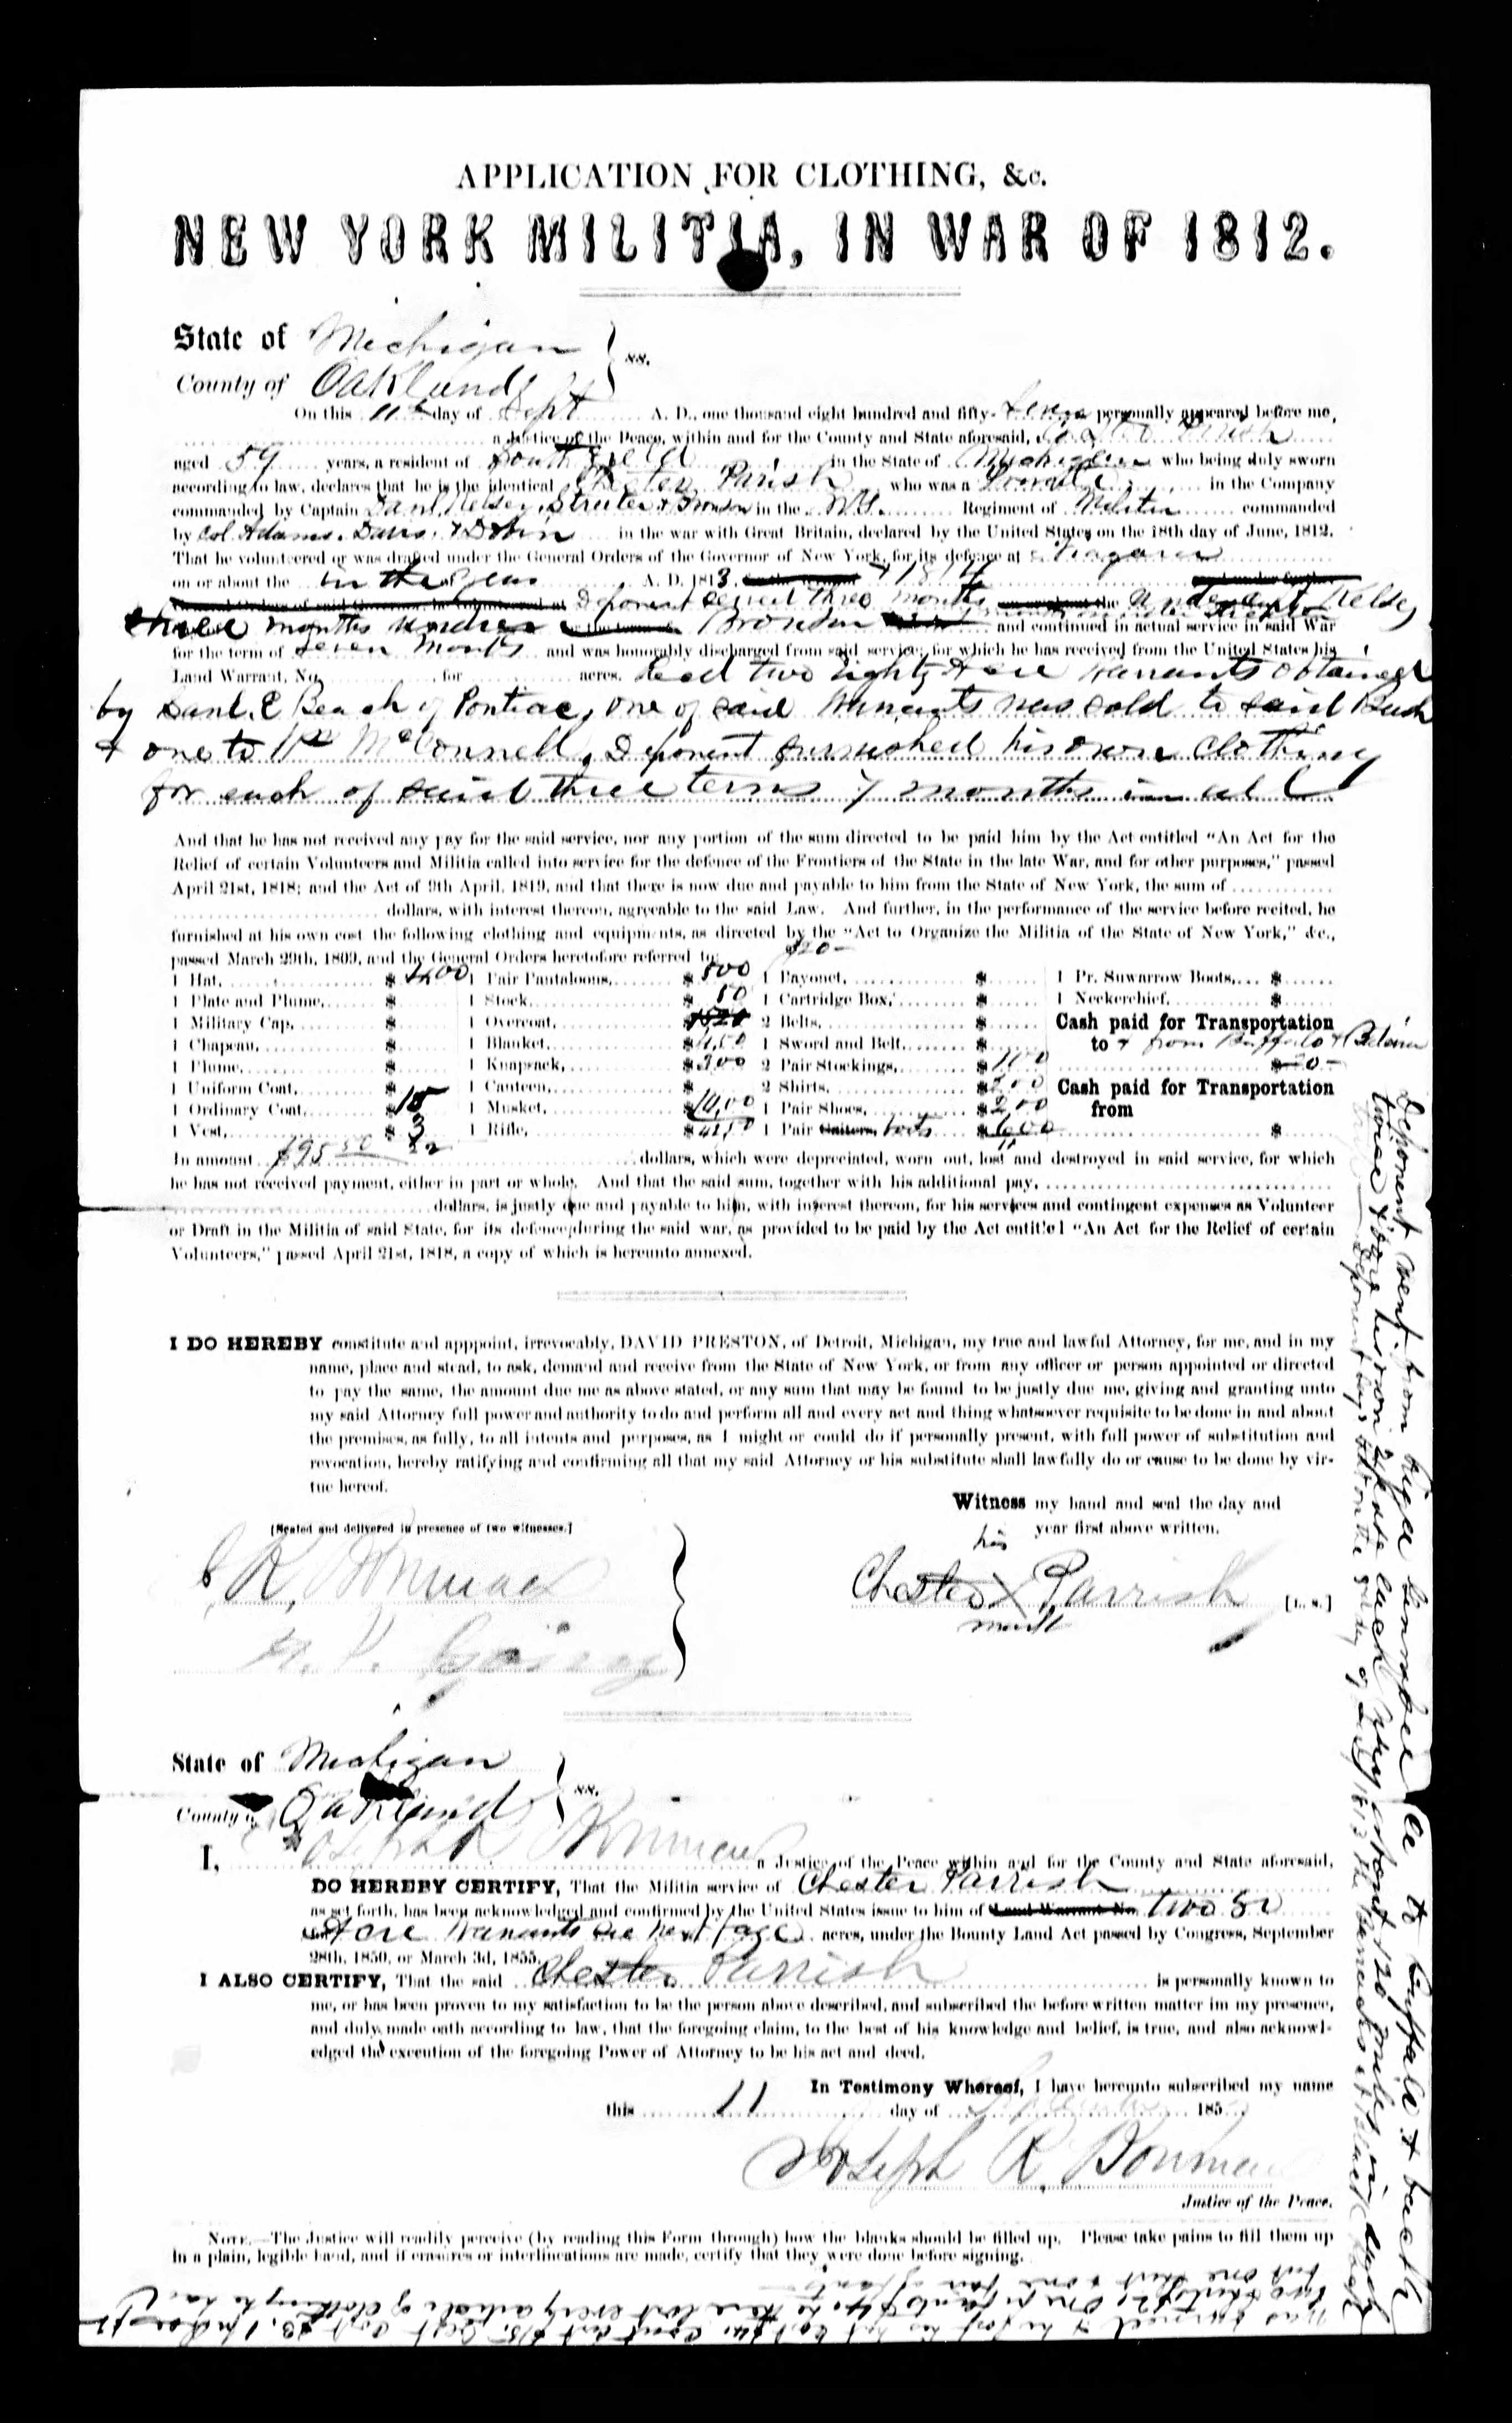 APPLICATION FOR CLOTHING, &c.
NEW YORK MILITIA, IN WAR OF 1812.
State of Michigan } ss.
County of Oakland
On this 11th day of Sept A. D., one thousand eight hundred and fifty- personally appeared before me,
a Justice of the Peace, within and for the County and State aforesaid,
aged 59 years, a resident of Southfield in the State of Michigan who being duly sworn
according to law, declares that he is the identical Chester Parish who was a Private in the Company
commanded by Captain Danl. Kelsey, Streeter & Bronson in the N.Y. Regiment of Militia commanded
by Col Adams. Davis. & Dobin in the war with Great Britain, declared by the United States on the 18th day of June, 1812.
That he volunteered or was drafted under the General Orders of the Governor of New York, for its defence at Niagara
on or about the in the year A. D. 1813, & 1814
Deponent served three months under Capt Kelsey
three months under Bronson and continued in actual service in said War
for the term of seven months and was honorably discharged from said service; for which he has received from the United States his
Land Warrant, No. for acres. had two eighty acre warrants obtained
by Danl. E Beach of Pontiac, one of said Warrants was sold to said Beach
& one to Wm McConnell, Deponent furnished his own clothing
for each of said three terms 7 months in all
And that he has not received any pay for the said service, nor any portion of the sum directed to be paid him by the Act entitled "An Act for the
Relief of certain Volunteers and Militia called into service for the defence of the Frontiers of the State in the late War, and for other purposes," passed
April 21st, 1818; and the Act of 9th April, 1819, and that there is now due and payable to him from the State of New York, the sum of
dollars, with interest thereon, agreeable to the said Law. And further, in the performance of the service before recited, he
furnished at his own cost the following clothing and equipments, as directed by the "Act to Organize the Militia of the State of New York," &c.,
passed March 29th, 1809, and the General Orders heretofore referred to: $20-
1 Hat, $ 400 1 Pair Pantaloons, $ 800 1 Bayonet, $ 1 Pr. Suwarrow Boots, $
1 Plate and Plume, $ 1 Stock, $ 50 1 Cartridge Box, $ 1 Neckerchief, $
1 Military Cap, $ 1 Overcoat, $ 2 Belts, $ Cash paid for Transportation
1 Chapeau, $ 1 Blanket, $ 4,50 1 Sword and Belt, $ to & from Buffalo &
1 Plume, $ 1 Knapsack, $ 300 2 Pair Stockings, $ 100 $ -0-
1 Uniform Coat, $ 1 Canteen, $ 2 Shirts, $ Cash paid for Transportation
1 Ordinary Coat, $ 15 1 Musket, $ 10,00 1 Pair Shoes, $ 2,00 from
1 Vest, $ 3 1 Rifle, $ 1 Pair Gaiters, boots $ 600 $
In amount $95 50 dollars, which were depreciated, worn out, lost and destroyed in said service, for which
he has not received payment, either in part or whole. And that the said sum, together with his additional pay,
dollars, is justly due and payable to him, with interest thereon, for his services and contingent expenses as Volunteer
or Draft in the Militia of said State, for its defence during the said war, as provided to be paid by the Act entitled "An Act for the Relief of certain
Volunteers," passed April 21st, 1818, a copy of which is hereunto annexed.
I DO HEREBY constitute and apppoint, irrevocably, DAVID PRESTON, of Detroit, Michigan, my true and lawful Attorney, for me, and in my
name, place and stead, to ask, demand and receive from the State of New York, or from any officer or person appointed or directed
to pay the same, the amount due me as above stated, or any sum that may be found to be justly due me, giving and granting unto
my said Attorney full power and authority to do and perform all and every act and thing whatsoever requisite to be done in and about
the premises, as fully, to all intents and purposes, as I might or could do if personally present, with full power of substitution and
revocation, hereby ratifying and confirming all that my said Attorney or his substitute shall lawfully do or cause to be done by vir-
tue hereof.
Witness my hand and seal the day and
year first above written.
[Sealed and delivered in presence of two witnesses.]
his
Chester X Parrish [L. S.]
mark
State of Michigan } ss.
County of Oakland
I, Joseph R Bowman a Justice of the Peace within and for the County and State aforesaid,
DO HEREBY CERTIFY, That the Militia service of Chester Parrish
as set forth, has been acknowledged and confirmed by the United States issue to him of Land Warrant No. two 80
acre Warrants see next page acres, under the Bounty Land Act passed by Congress, September
28th, 1850, or March 3d, 1855.
I ALSO CERTIFY, That the said Chester Parrish is personally known to
me, or has been proven to my satisfaction to be the person above described, and subscribed the before written matter im my presence,
and duly made oath according to law, that the foregoing claim, to the best of his knowledge and belief, is true, and also acknowl-
edged the execution of the foregoing Power of Attorney to be his act and deed.
In Testimony Whereof, I have hereunto subscribed my name
this 11 day of September 185
Joseph R. Bowman
Justice of the Peace.
NOTE.—The Justice will readily perceive (by reading this Form through) how the blanks should be filled up. Please take pains to fill them up
in a plain, legible hand, and if erasures or interlineations are made, certify that they were done before signing.
Deponent went from Riga Genesee Co to Buffalo & back
twice & bore his own expense each way about 120 miles in each